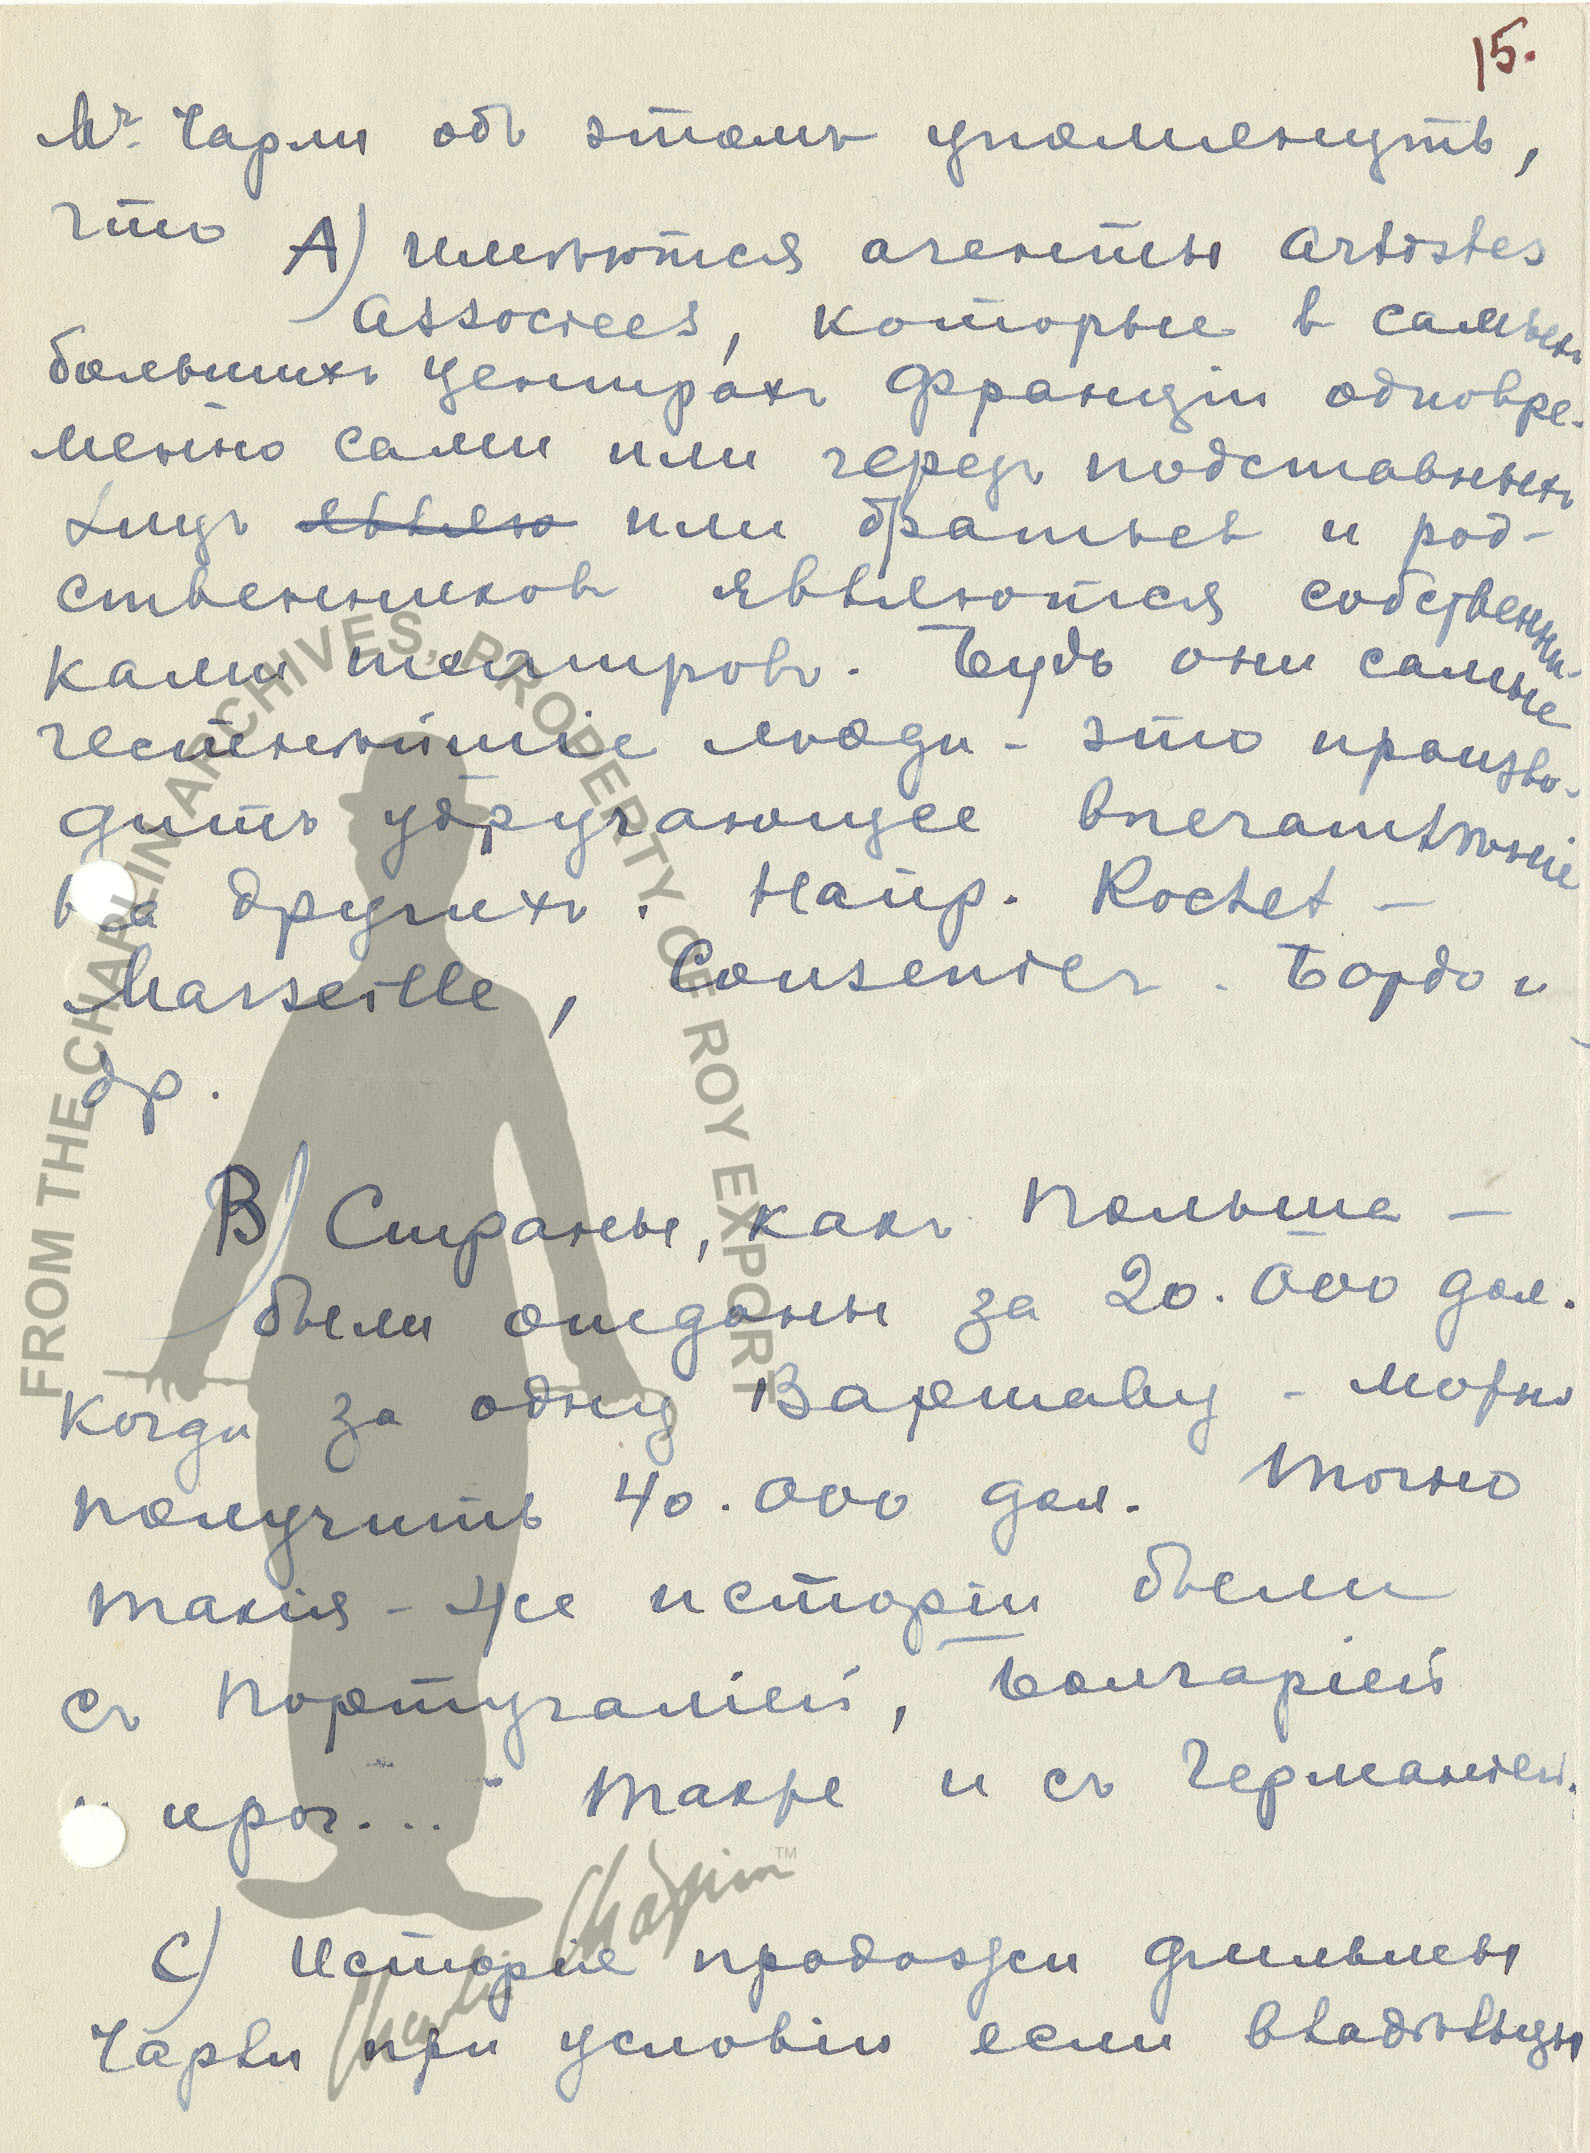 15.
Mr. Чарли объ этомъ упомянуть,
что А) имѣются агенты Artistes
Associées, которые в самыхъ
большихъ центрахъ Франціи одновре-
менно сами или черезъ подставныхъ
лицъ являю или братьев и род-
ственниковъ являются собственни-
ками театровъ. Будь они самые
честнѣйшіе люди - это произво-
дитъ удручающее впечатлѣніе
на другихъ. Напр. Rochet -
Marseille, Cousenier. Бордо и
др.
B) Страны, какъ Польша -
были отданы за 20.000 дол.
когда за одну Варшаву - можно
получить 40.000 дол. Точно
такія-же исторіи были
съ Португаліей, Болгаріей
и проч... также и съ Германіей.
C) Исторія продажи фильмы
Чарли при условіи если владѣльцы
FROM THE CHAPLIN ARCHIVES, PROPERTY OF ROY EXPORT
Charlie Chaplin TM